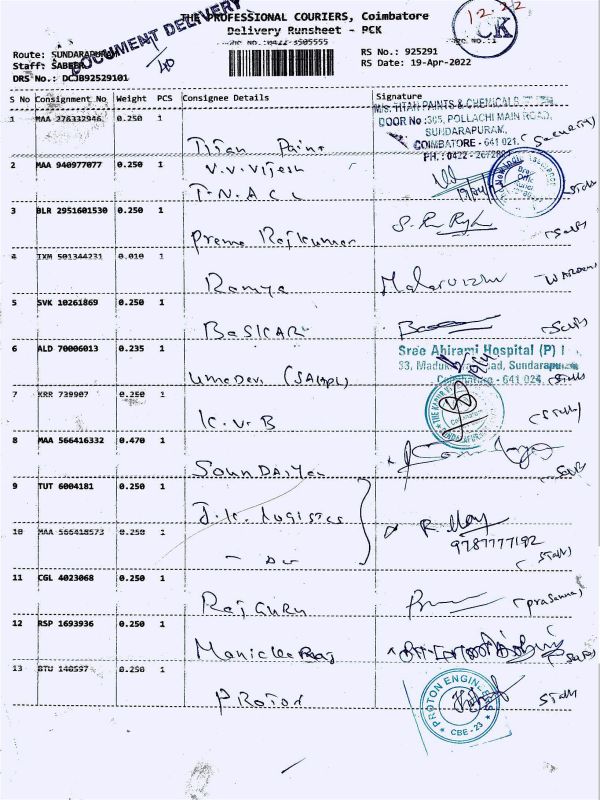 12.22
THE PROFESSIONAL COURIERS, Coimbatore
DOCUMENT DELIVERY
Delivery Runsheet - PCK
CK
Route: SUNDARAPURAM
RS No.: 925291
Staff: SABEER
RS Date: 19-Apr-2022
DRS No.: DCJB92529101
S No Consignment No Weight PCS Consignee Details Signature
M/S. TITAN PAINTS & CHEMICALS
1 MAA 278332946 0.250 1
DOOR No :305, POLLACHI MAIN ROAD,
SUNDARAPURAM,
COIMBATORE - 641 021.
Titan Paint (Security)
2 MAA 940977077 0.250 1
V.V. Vijesh
T.N.A.C.L
Staff
3 BLR 2951601530 0.250 1
Prema Rajkumar (Self)
4 IXM 501344231 0.010 1
Ramya Malarvizhi Warden
5 SVK 10261869 0.250 1
BASKAR (Self)
6 ALD 70006013 0.235 1
Sree Abirami Hospital (P)
Sundarapuram
Coimbatore - 641 024
Uma Devi
(Staff)
7 KRR 739907 0.250 1
K.V.B (Staff)
8 MAA 566416332 0.470 1
(Self)
9 TUT 6004181 0.250 1
J.K. Logistics
10 MAA 566418573 0.250 1
9787777192
- Do - (Staff)
11 CGL 4023068 0.250 1
Raj Guru (Prasanna)
12 RSP 1693936 0.250 1
(Self)
13 BTU 140597 0.250 1
PROTON
PROTON ENGINEERS
Staff
CBE - 23